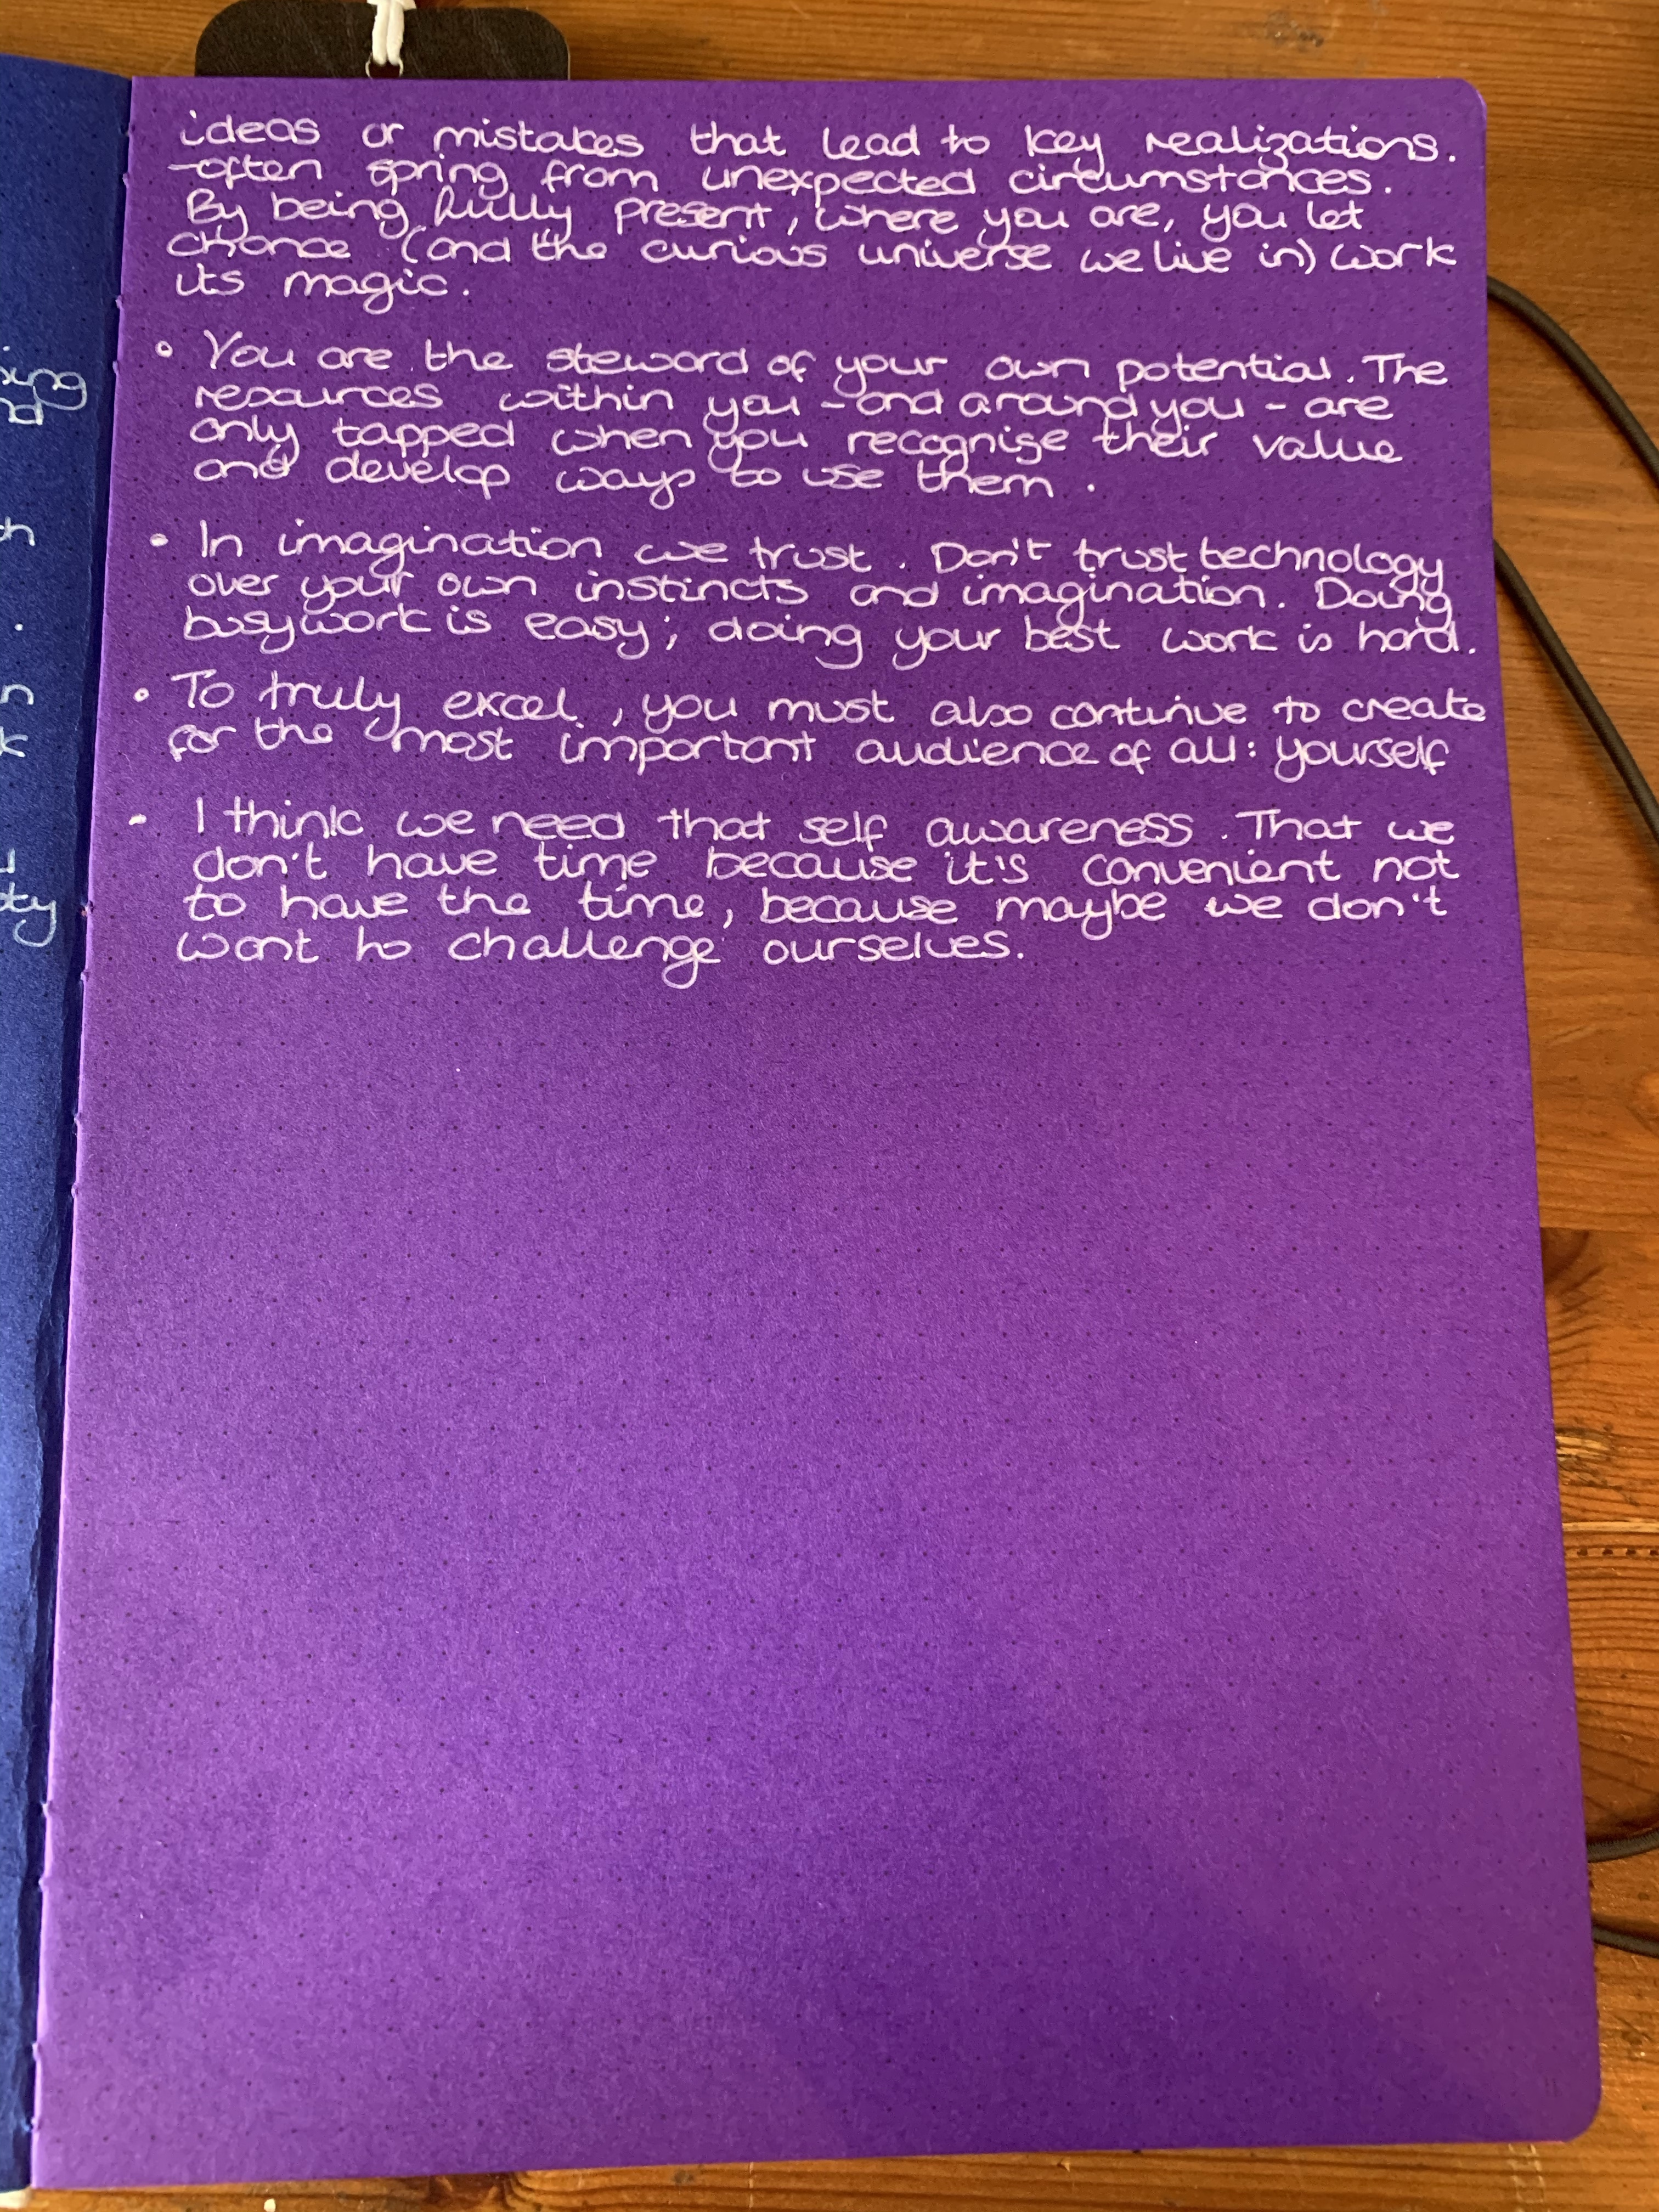 ideas or mistakes that lead to key realizations.
-often spring from unexpected circumstances.
By being fully present, where you are, you let
chance (and the curious universe we live in) work
its magic.
• You are the steward of your own potential. The
resources within you - and around you - are
only tapped when you recognise their value
and develop ways to use them.
• In imagination we trust. Don't trust technology
over your own instincts and imagination. Doing
busywork is easy; doing your best work is hard.
• To truly excel, you must also continue to create
for the most important audience of all: yourself
- I think we need that self awareness. That we
don't have time because it's convenient not
to have the time, because maybe we don't
want to challenge ourselves.